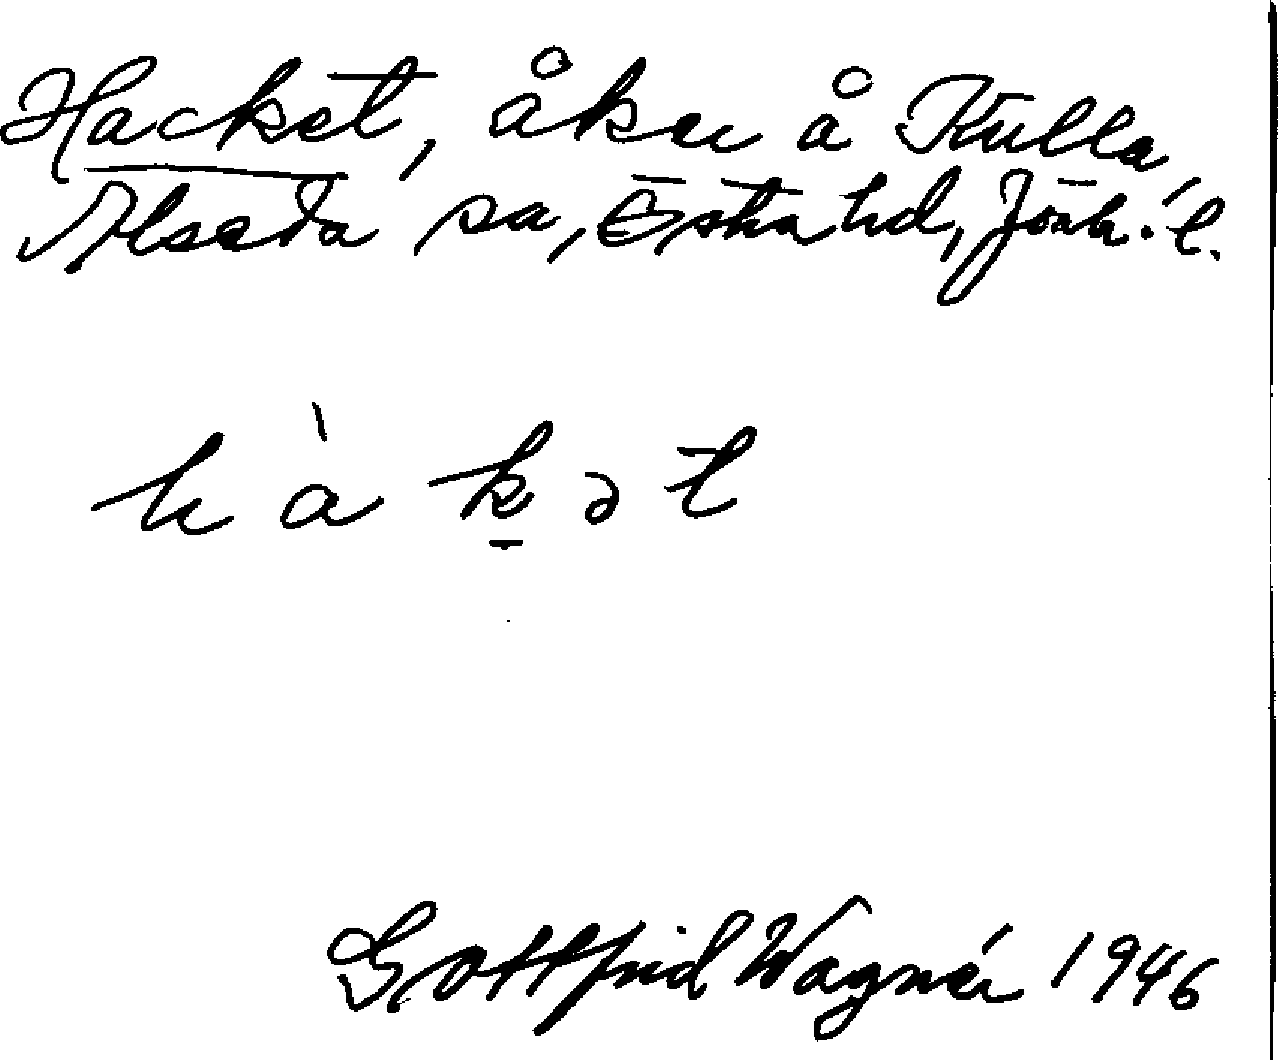 Hacket, åker å Kulla
Alseda sn, Östra hd, Jönk. l.
hàkət
Gottfrid Wagnér 1946